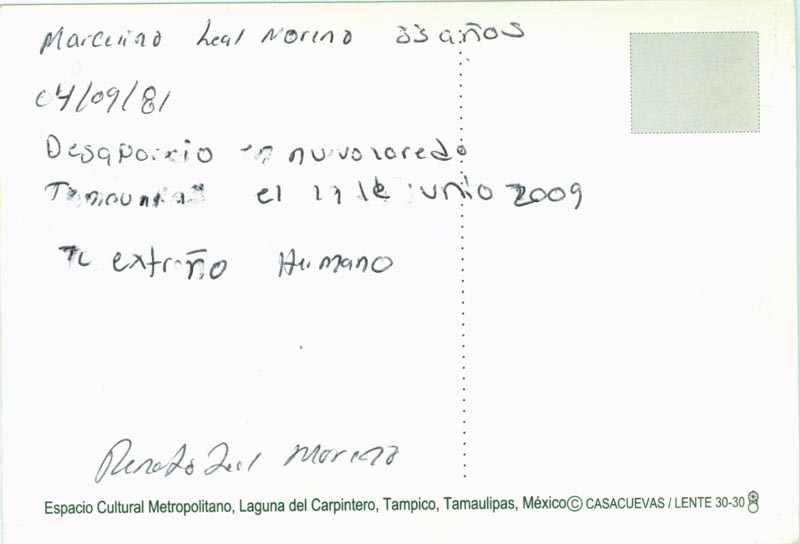 Marcelino Leal Moreno 33 años
04/09/81
Desaparcio en nuvo laredo
Tamaulipas el de junio 2009
Te extraño Humano
Renato Leal Moreno
Espacio Cultural Metropolitano, Laguna del Carpintero, Tampico, Tamaulipas, México© CASACUEVAS / LENTE 30-30